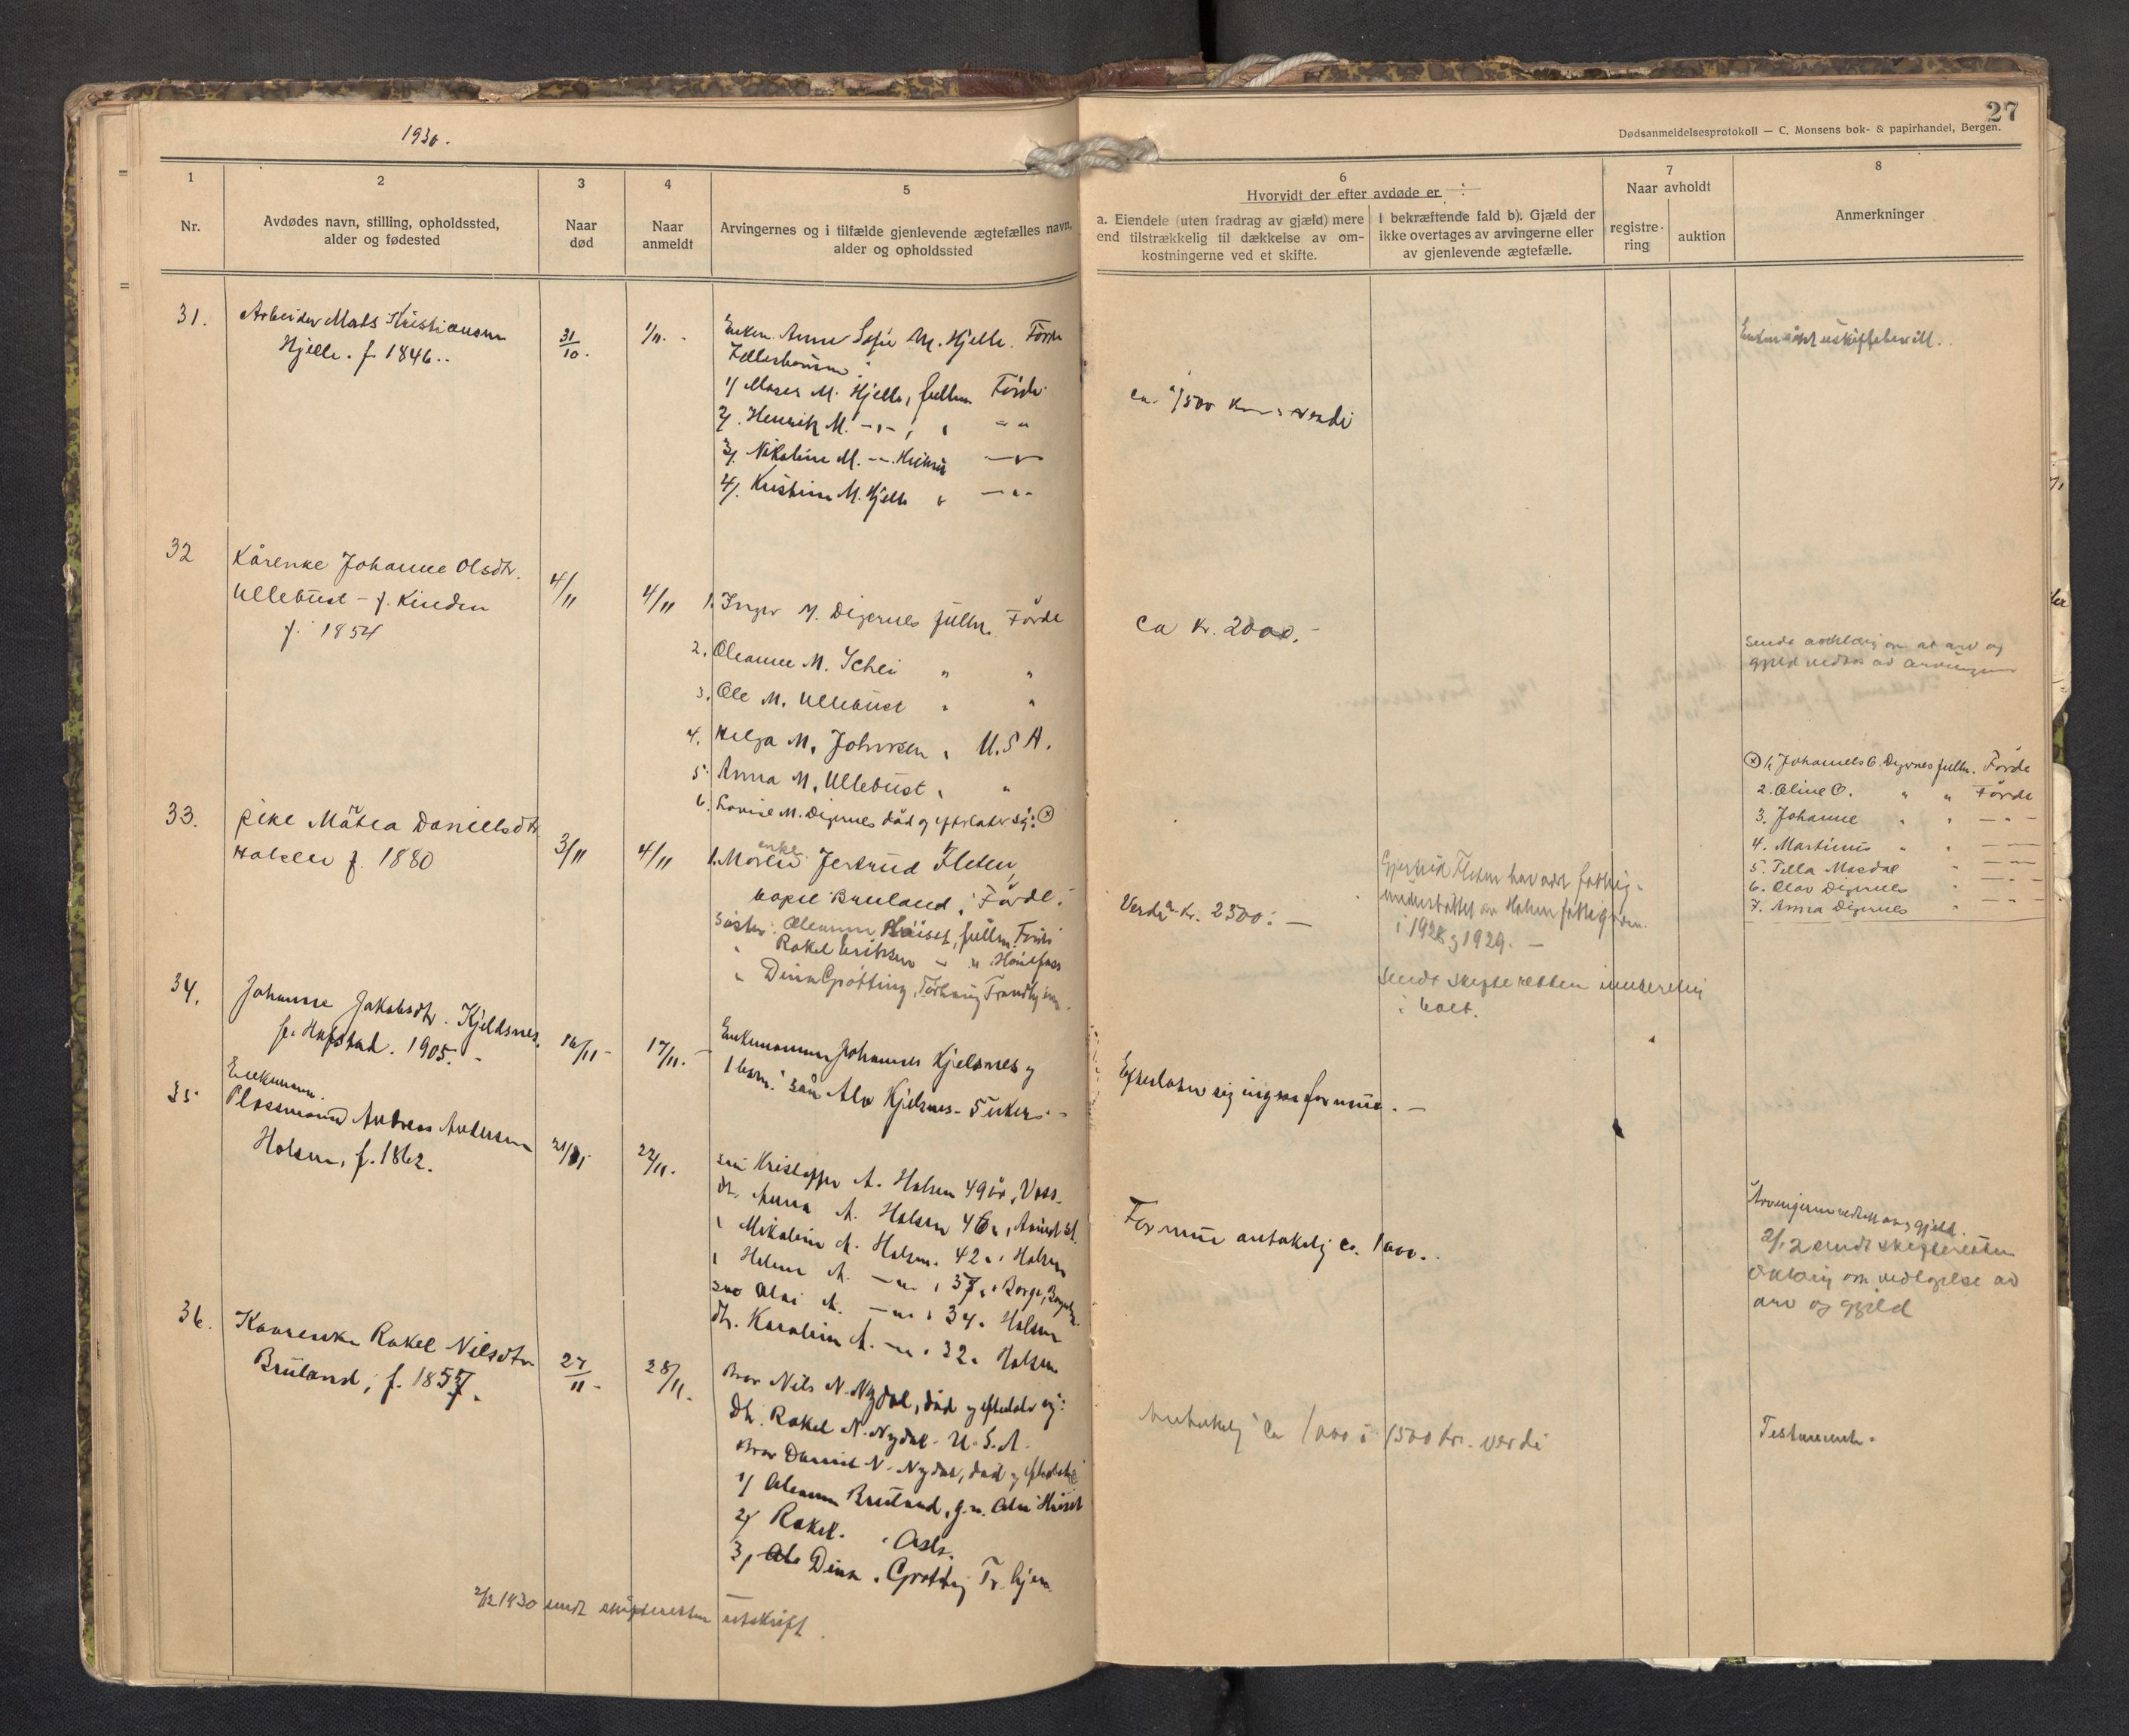 1930.
27
Dødsanmeldelsesprotokoll — C. Monsens bok- & papirhandel, Bergen.
1
Nr.
2
Avdødes navn, stilling, opholdssted,
alder og fødested
3
Naar
død
4
Naar
anmeldt
5
Arvingernes og i tilfælde gjenlevende ægtefælles navn,
alder og opholdssted
6
Hvorvidt der efter avdøde er :
a. Eiendele (uten fradrag av gjæld) mere
end tilstrækkelig til dækkelse av om-
kostningerne ved et skifte.
I bekræftende fald b). Gjæld der
ikke overtages av arvingerne eller
av gjenlevende ægtefælle.
7
Naar avholdt
registre-
ring
auktion
8
Anmerkninger
31.
Arbeider Mads Kristiansen
Hjelle. f. 1846.
31/10.
1/11.
Enken Anne Sofie M. Hjelle. Förde
1/ Moses M. Hjelle, fullm. Förde
2/. Henrik M. -"- , " - "
3/. Nikoline M. -"-
4/. Kristine M. Hjelle " - " -
ca. 1500 Kr. i verdi
32
Kårenke Johanne Olsdtr.
Ullebust - f. Kinden
f. 1854
4/11
4/11
1. Inger M. Digernes fullm. Förde
2. Oleanne M. Schei " "
3. Ole M. Ullebust " "
4. Helga M. Johnsen " U.S.A.
5. Anna M. Ullebust " "
6. Lovise M. Digernes död og efterlater sig: ⊗
ca kr. 2000.-
Sendt erklæring om at arv og
gjeld vedtas av arvingene
⊗ 1. Johannes O. Digernes fullm. Förde
2. Oline O. " " Förde
3. Johanne " " - " -
4. Martinus " " - " -
5. Tilla Mosdal " - " -
6. Olav Digernes " - " -
7. Anna Digernes " - " -
33.
pike Märta Danielsdtr.
Holsen f. 1880
3/11
4/11
enke
1. Moren Jertrud Fleten,
Bruland, Förde.
Söster: Oleanne, fullm. Förde
" Rakel Eriksen - "
" Dina Grötting, Trondhjem.
Verdi ca. kr. 2500: -
Gjertrud Fleten har vært fattig-
understöttet av Holsen fattigvesen
i 1928 og 1929. -
Sendt skifteretten innberetning
34.
Johanne Jakobsdtr. Kjeldsnes,
f. Hafstad. 1905. -
16/11 -
17/11. -
Enkemannen Johannes Kjelsnes og
1 barn: sön Alv Kjelsnes - 5 uker. -
Efterlater sig ingen formue. -
35
Enkemann.
Plassmand Andreas Andersen
Holsen, f. 1862.
21/11
22/11.
sön Kristoffer A. Holsen 49 år, Voss.
dtr. Anna A. Holsen
" Nikoline A. Holsen. 42 " Holsen
" Helene A. - " - , 37 "
sön Olai A. - " - " 34 " Holsen
dtr. Karoline A. - " - " 32 " Holsen
Formue antakelig ca. 1000..
Arvingerne vedtatt arv og gjeld.
2/12 sendt skifteretten
erklæring om vedtagelse av
arv og gjeld
36.
Kaarenke Rakel Nilsdtr.
Bruland, f. 1857.
27/11 -
28/11.
Bror Nils N. Nydal, död og efterlater sig:
Dtr. Rakel N. Nydal - U.S.A.
Bror Daniel N. Nydal, död og efterlater
1/ Oleanne Bruland,
2/ Rakel. " Oslo.
3, Dina " Grötting Tr.hjem
Antakelig ca 1000 à 1500 kr. verdi
Testamente.
2/12 1930 sendt skifteretten utskrift.